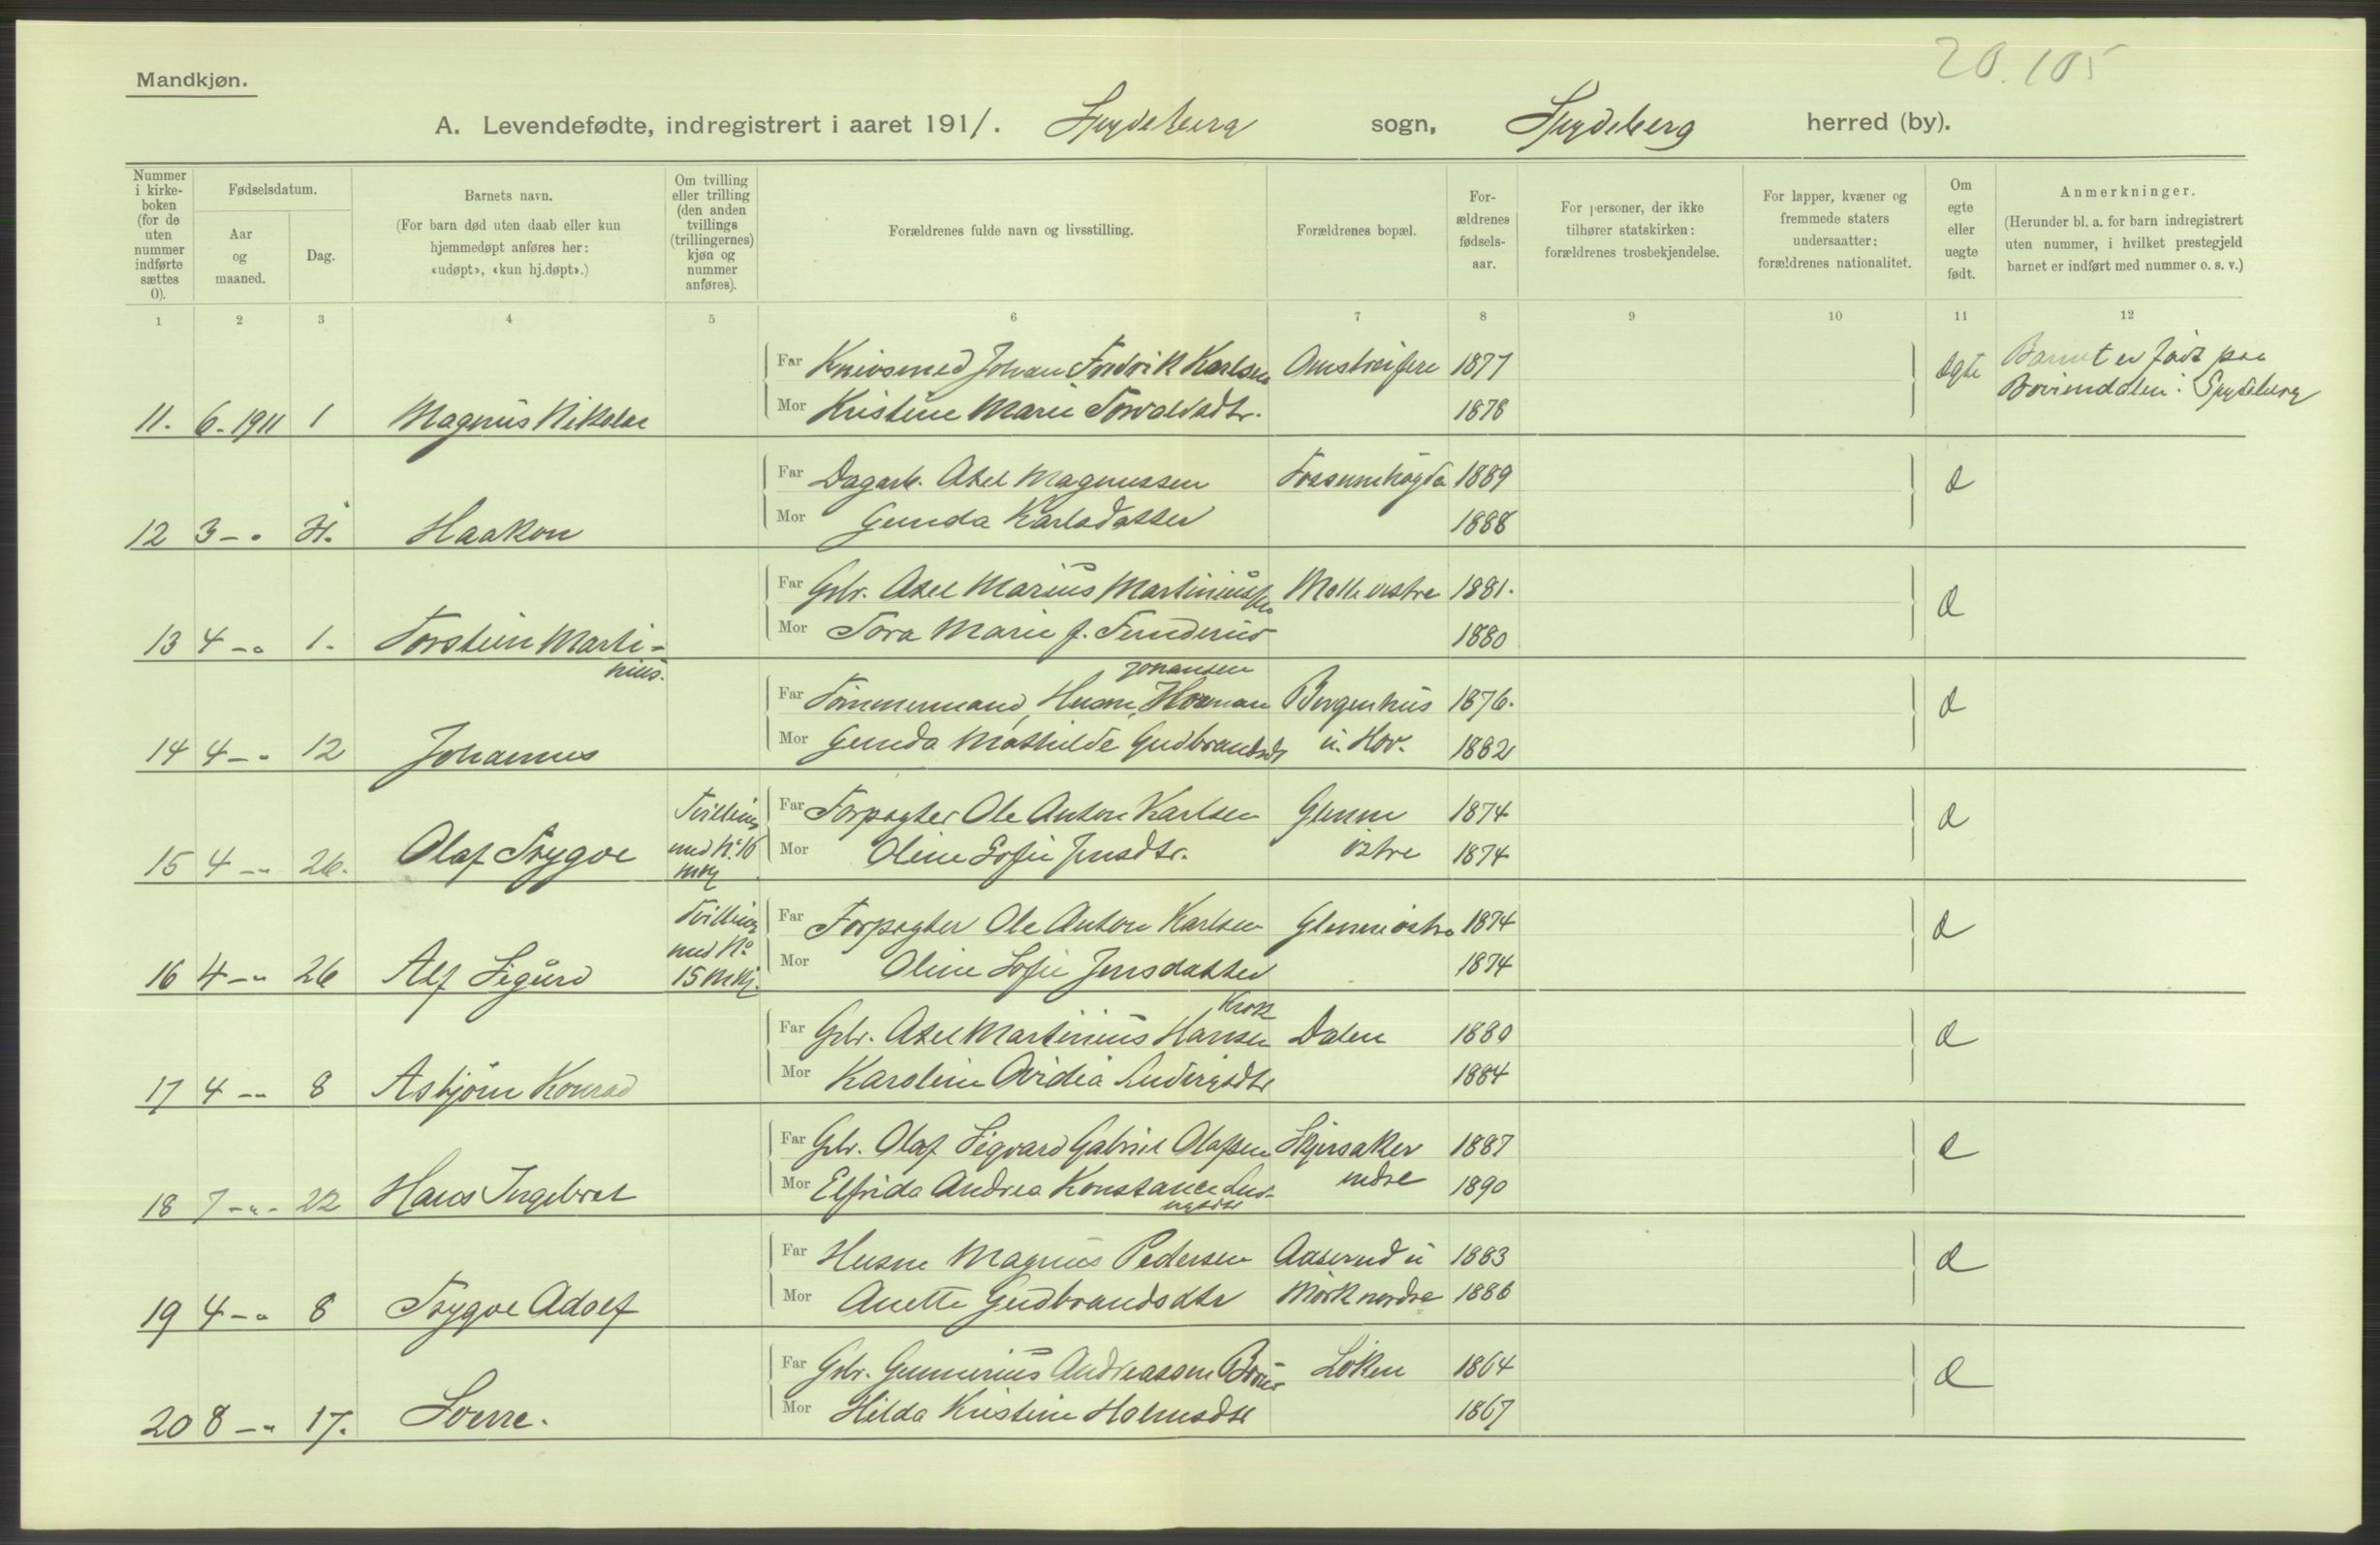 20.105
Mandkjøn.
A. Levendefødte, indregistrert i aaret 1911. Spydeberg sogn, Spydeberg herred (by).
Nummer i kirkeboken (for de uten nummer indførte sættes 0).
Fødselsdatum.
Aar og maaned.
Dag.
Barnets navn.
(For barn død uten daab eller kun hjemmedøpt anføres her: «udøpt», «kun hj.døpt».)
Om tvilling eller trilling (den anden tvillings (trillingernes) kjøn og nummer anføres).
Forældrenes fulde navn og livsstilling.
Forældrenes bopæl.
For-ældrenes fødsels-aar.
For personer, der ikke tilhører statskirken: forældrenes trosbekjendelse.
For lapper, kvæner og fremmede staters undersaatter: forældrenes nationalitet.
Om egte eller uegte født.
Anmerkninger.
(Herunder bl. a. for barn indregistrert uten nummer, i hvilket prestegjeld barnet er indført med nummer o. s. v.)
1 2 3 4 5 6 7 8 9 10 11 12
Far Knivsmed Johan Fredrik Karlsen Omstreifere 1877 Ægte Barnet er født paa
Mor Kristine Marie Torvaldsdtr. 1878 Spydeberg
11. 6.1911 1 Magnus Nikolai
Far Dagarb. Axel Magnussen Fossumhögda 1889 Æ
Mor Gunda Karlsdatter 1888
12 3 -" 31. Haakon
Far Gbr. Axel Marius Martiniussen Molle vestre 1881. Æ
Mor Tora Marie f. Funderud 1880
13 4 -" 1. Torstein Marti-
nius.
Johansen
Far Tömmermand, Husm. Herman Bergenhus 1876. Æ
Mor Gunda Mathilde Gudbrandsdt u. Hov. 1882
14 4 -" 12 Johannes
Tvilling Far Forpagter Ole Anton Karlsen Glenne 1874 Æ
med No 16 Mor Oline Sofie Jensdtr. östre 1874
15 4 -" 26. Olaf Trygve mkj
Tvilling Far Forpagter Ole Anton Karlsen Glenne östre 1874 Æ
med No Mor Oline Sofie Jensdatter 1874
16 4 -" 26 Alf Sigurd 15 mkj.
Krok
Far Gbr. Axel Martinius Hansen Dalen 1880 Æ
Mor Karoline Ovidia Ludvigsdtr 1884
17 4 -" 8 Asbjörn Konrad
Far Gbr. Olaf Sigvard Gabriel Olafsen Skjersaker 1887 Æ
Mor Elfrida Andrea Konstance Lud- nedre 1890
vigsdtr
18 7 -"- 22 Hans Ingebret
Far Husm Magnus Pedersen Aaserud u 1883 Æ
Mor Anette Gudbrandsdtr Mörk nordre 1886
19 4 -" 8 Trygve Adolf
Far Gbr. Gunnerius Andreassen Löken 1864 Æ
Mor Hilda Kristine Holmsdtr 1867
20 8 -" 17. Sverre.